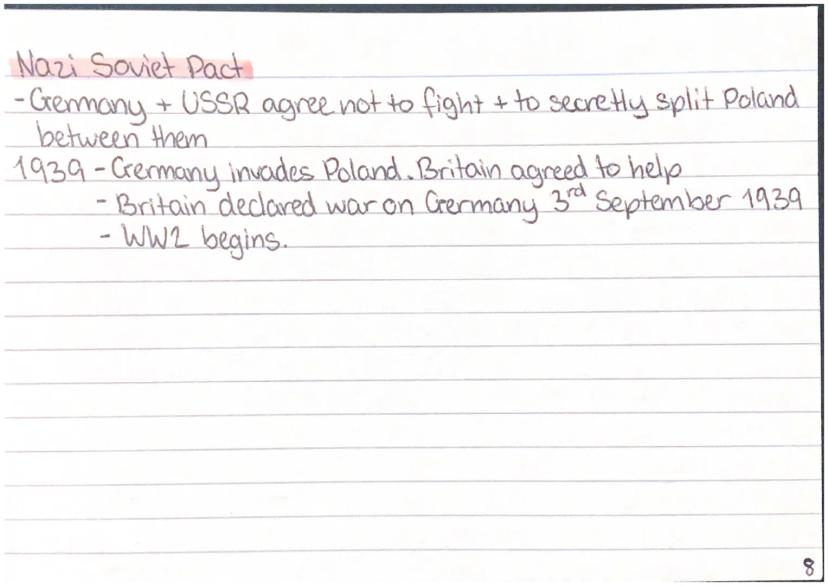 Nazi Soviet Pact
- Germany + USSR agree not to fight + to secretly split Poland
between them
1939 - Germany invades Poland. Britain agreed to help
- Britain declared war on Germany 3rd September 1939
- WW2 begins.
8